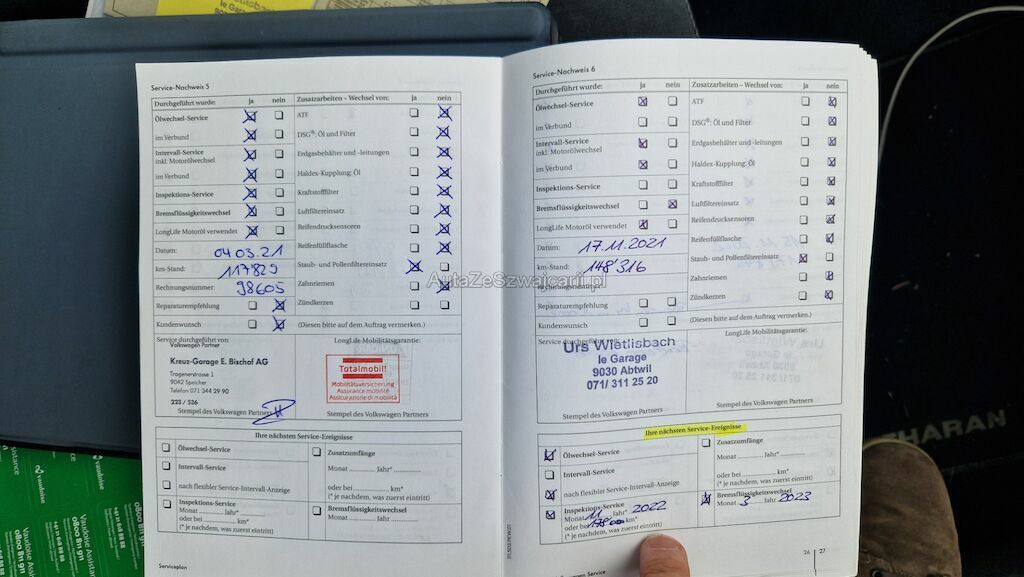 le Garage
Service-Nachweis 5
Durchgeführt wurde: ja nein
Zusatzarbeiten – Wechsel von: ja nein
Ölwechsel-Service
im Verbund
Intervall-Service
inkl. Motorölwechsel
im Verbund
Inspektions-Service
Bremsflüssigkeitswechsel
LongLife Motoröl verwendet
Datum: 04.03.21
km-Stand: 117829
Rechnungsnummer: 98605
Reparaturempfehlung
Kundenwunsch
ATF
DSG®: Öl und Filter
Erdgasbehälter und -leitungen
Haldex-Kupplung: Öl
Kraftstofffilter
Luftfiltereinsatz
Reifendrucksensoren
Reifenfüllflasche
Staub- und Pollenfiltereinsatz
Zahnriemen
Zündkerzen
(Diesen bitte auf dem Auftrag vermerken.)
Service durchgeführt von:
Volkswagen Partner
Kreuz-Garage E. Bischof AG
Trogenerstrasse 1
9042 Speicher
Telefon 071 344 29 90
223 / 536
Stempel des Volkswagen Partners
LongLife Mobilitätsgarantie:
Totalmobil!
Mobilitätsversicherung
Assurance mobilité
Assicurazione di mobilità
Stempel des Volkswagen Partners
Ihre nächsten Service-Ereignisse
Ölwechsel-Service
Intervall-Service
nach flexibler Service-Intervall-Anzeige
Inspektions-Service
Monat Jahr*
oder bei km*
(* je nachdem, was zuerst eintritt)
Zusatzumfänge
Monat Jahr*
oder bei km*
(* je nachdem, was zuerst eintritt)
Bremsflüssigkeitswechsel
Monat Jahr
Serviceplan
Service-Nachweis 6
Durchgeführt wurde: ja nein
Zusatzarbeiten – Wechsel von: ja nein
Ölwechsel-Service
im Verbund
Intervall-Service
inkl. Motorölwechsel
im Verbund
Inspektions-Service
Bremsflüssigkeitswechsel
LongLife Motoröl verwendet
Datum: 17.11.2021
km-Stand: 148'316
Rechnungsnummer:
Reparaturempfehlung
Kundenwunsch
ATF
DSG®: Öl und Filter
Erdgasbehälter und -leitungen
Haldex-Kupplung: Öl
Kraftstofffilter
Luftfiltereinsatz
Reifendrucksensoren
Reifenfüllflasche
Staub- und Pollenfiltereinsatz
Zahnriemen
Zündkerzen
(Diesen bitte auf dem Auftrag vermerken.)
Service durchgeführt von:
Urs Wietlisbach
le Garage
9030 Abtwil
071/ 311 25 20
Stempel des Volkswagen Partners
LongLife Mobilitätsgarantie:
Stempel des Volkswagen Partners
Ihre nächsten Service-Ereignisse
Ölwechsel-Service
Intervall-Service
nach flexibler Service-Intervall-Anzeige
Inspektions-Service
Monat 11 Jahr* 2022
oder bei km*
(* je nachdem, was zuerst eintritt)
Zusatzumfänge
Monat Jahr*
oder bei km*
(* je nachdem, was zuerst eintritt)
Bremsflüssigkeitswechsel
Monat 3 Jahr 2023
26 27
AutaZeSzwajcarii.pl
HARAN
vaudoise
Vaudoise Assistance
0800 811 911